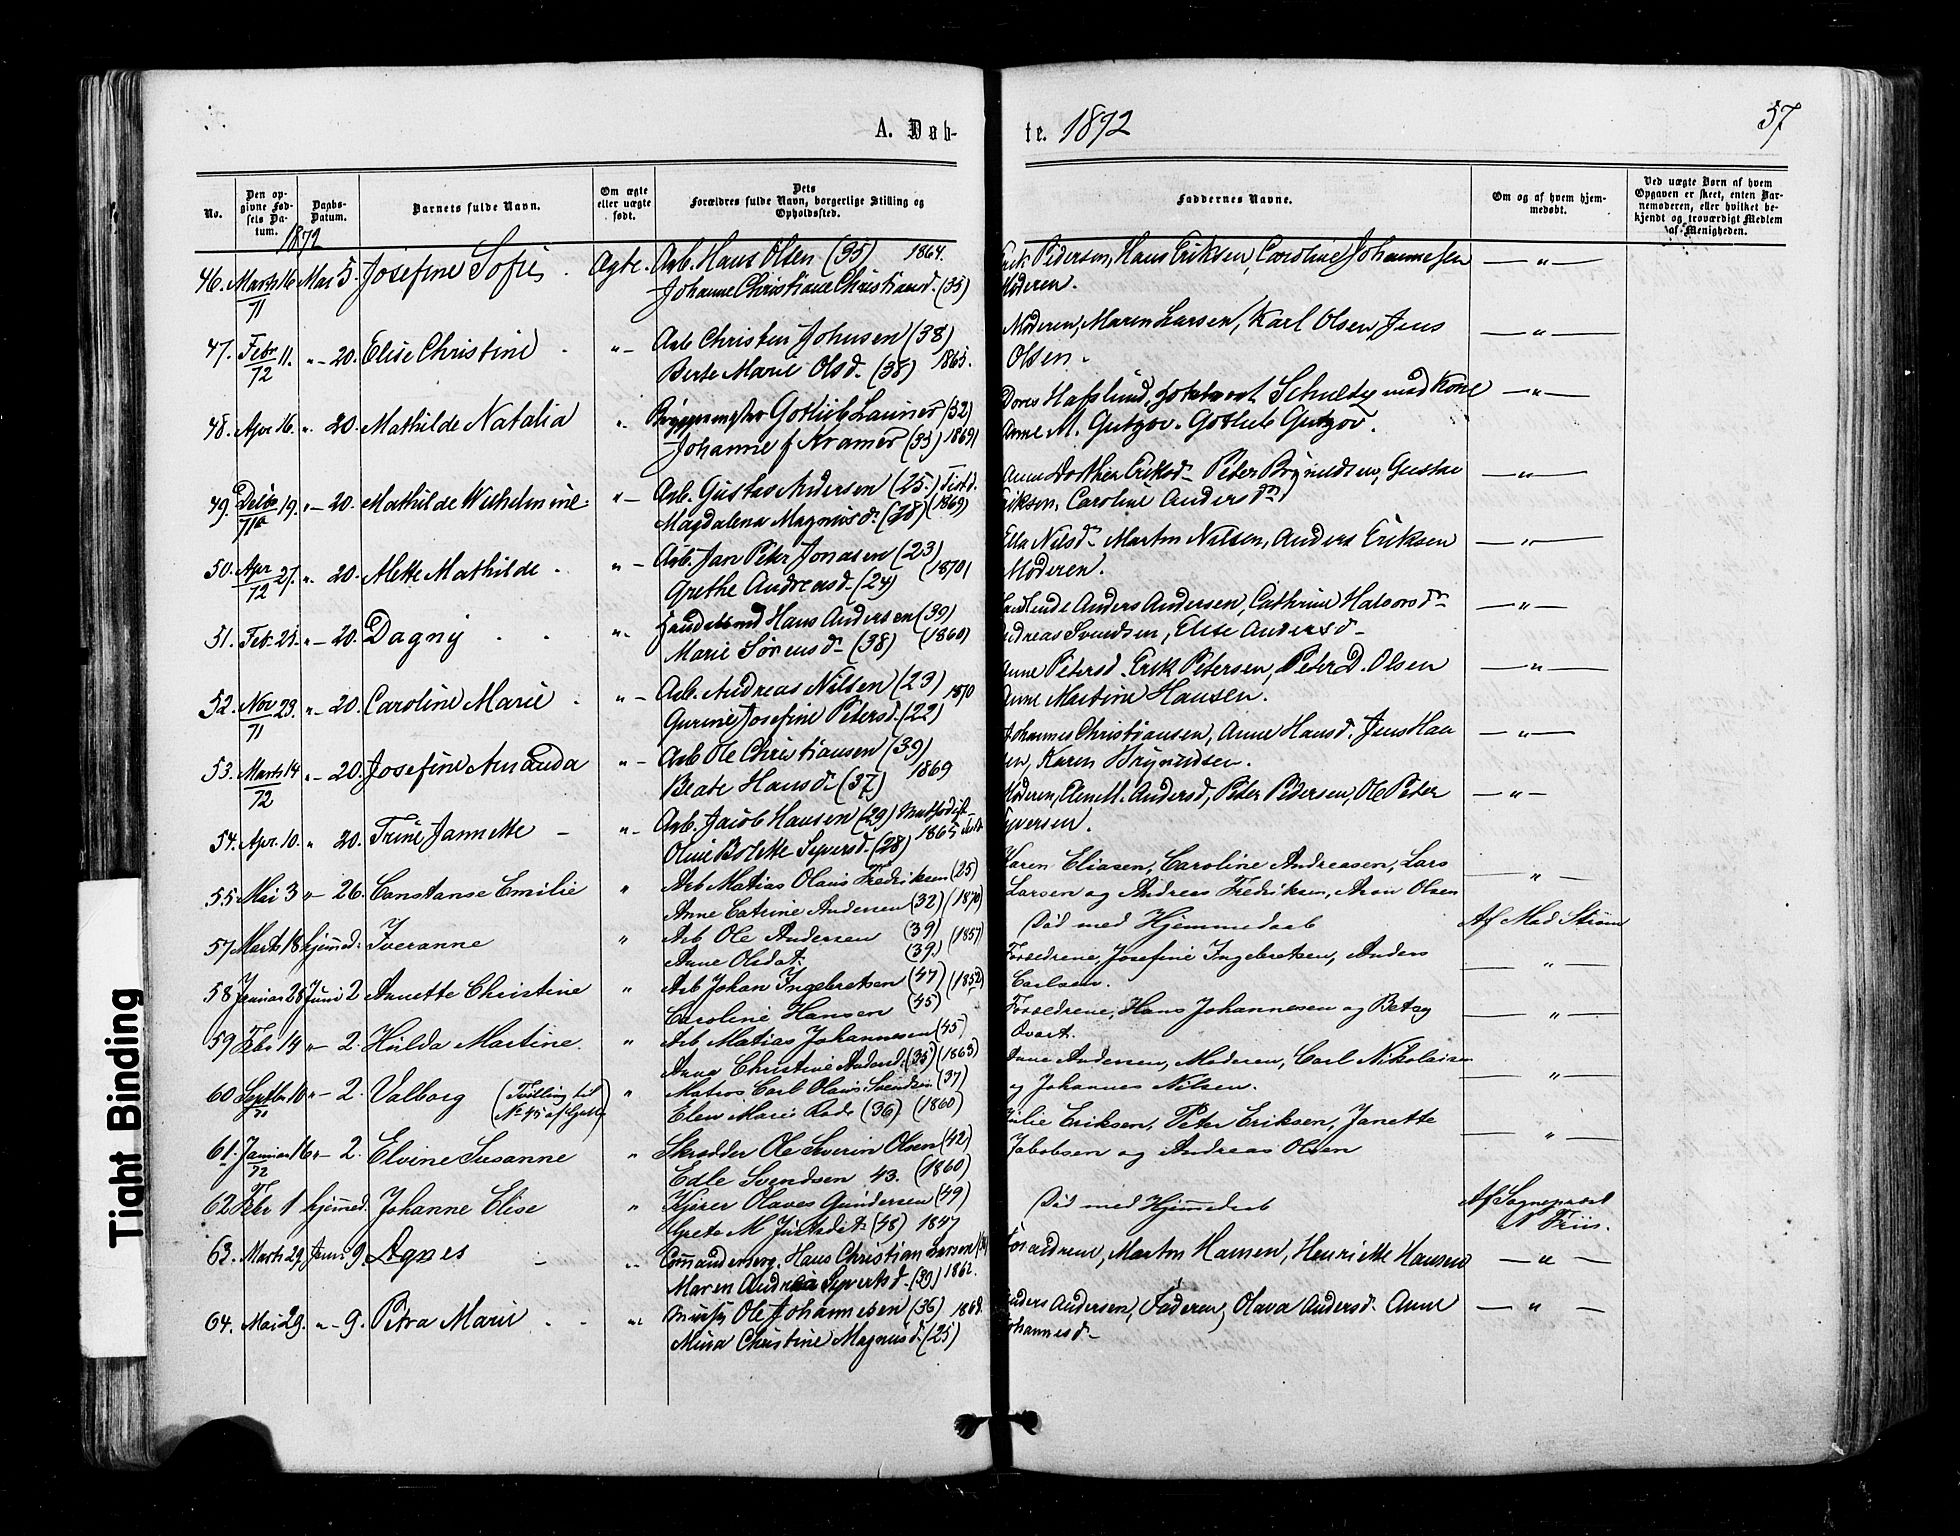 A. Døb-
te. 1872
37
No.
Den opgivne Fødsels Datum.
Daabs-Datum.
Barnets fulde Navn.
Om ægte eller uægte født.
Dets Forældres fulde Navn, borgerlige Stilling og Opholdsted.
Faddernes Navne.
Om og af hvem hjemmedøbt.
Ved uægte Børn af hvem Opgaven er skeet, enten Barnemoderen, eller hvilket bekjendt og troværdigt Medlem af Menigheden.
1872
46. Marts 16 Mai 5. Josefine Sofie Ægte. Arb. Hans Olsen (35) 1864. Erik Pedersen, Hans Eriksen, Caroline Johannesen — " —
71 Johanne Christiane Christiansd. (35) Moderen.
47. Febr 11. " — 20. Elise Christine " — Arb Christen Johnsen (38) Moderen, Maren Larsen, Karl Olsen, Jens — " —
72 Berte Marie Olsd. (38) 1865. Olsen.
48. Apr 16. " 20. Mathilde Natalia " Gotlieb Launer (32) Dores Hafslund, Schultz med Kone — " —
Johanne f Kramer (33) 1869 Anne M. Gutzov. Gotlieb Gutzov.
49. 19. " — 20. Mathilde Wilhelmine. " — Arb. Gustav Andersen (25.) Anne Dorthea Eriksd. Peter Brynildsen, Gustav — " —
Magdalena Magnusd. (28) (1869) Eriksen, Caroline Andersd.
50. Apr 27. " 20. Alette Mathilde " — Arb. Jan Peter Jonasen (23) Ella Nilsd. Martin Nilsen, Anders Eriksen — " —
72 Grethe Andreasd. (24) (1870) Moderen.
51. Feb. 21. " — 20. Dagny " — Hans Andersen (39) Anders Andersen, Cathrine Halvorsd. — " —
Marie Sørensd. (38) (1860) Andreas Svendsen, Elise Andersd.
52. Nov 29. " — 20. Caroline Marie " — Arb. Andreas Nilsen (23) 1870 Anne Petersd. Erik Petersen, Peter D. Olsen — " —
71 Gurine Josefine Petersd. (22) Anne Martine Hansen.
53. Marts 14 " — 20. Josefine Amanda " — Arb Ole Christiansen (39) Johannes Christiansen, Anne Hansd. Jens Han — " —
72 Beate Hansd. (37) 1869 sen, Karen Brynildsen.
54. Apr. 10. " 20. Trine Jannette — " — Arb. Jacob Hansen (29) Moderen, Andersd, Peter Pedersen, Ole Peter — " —
Oline Bolette Syversd. (28) 1865 Syversen.
55 Mai 3 " — 26. Constanse Emilie " Arb Matias Olaus Fredriksen (25) Karen Eliasen, Caroline Andreasen, Lars — " —
Anne Catrine Andersen (32) (1870) Larsen og Andreas Fredriksen, Aron Olsen
57 Marts 18 hjemmed. Iveranne " Arb Ole Andersen (39) (1857) Død med Hjemmedaab Af Mad Strøm
Anne Olsdat. (39)
58 Januar 28 Juni 2. Annette Christine " Arb Johan Ingebretsen (47) (1852) Forældrene, Josefine Ingebretsen, Anders — " —
Caroline Hansen (45) Carlsen.
59 Febr 19 " — 2. Hulda Martine. " Arb Matias Johannesen (45) Forældrene, Hans Johannesen og Betsy — " —
Anna Christine Andersd. (35) (1863) Qvart.
60 Septbr. 10 " — 2. Valborg (Tvilling til " Matros Carl Olaus Svendsen (37) Anne Andersen, Moderen, Carl Nikolaisen — " —
71 No 45 af Gutter) Elen Marie (36) (1860) og Johannes Nilsen.
61. Januar 16 " — 2. Elvine Susanne " Skrædder Ole Severin Olsen (42) Julie Eriksen, Peter Eriksen, Janette — " —
72 Edle Svendsen 43. (1860) Jakobsen og Andreas Olsen
62 Febr 1 hjemmed. Johanne Elise " Kjører Olaves Gundersen (49) Død med Hjemmedaab Af Sognepræst
Grete M Justsdat. (48) 1847 N Friis.
63. Marts 29. Juni 9. Agnes — " Hans Christian Larsen Forældrene, Martin Hansen, Henriette Hansen — " —
Maren Andrea Syvertsd. (39) 1862.
64. Mai 29. " — 9. Petra Marie " Ole Johannesen (36) 1868. Anders Andersen, Faderen, Olava Andersd. Anne — " —
Mina Christine Magnusd. (25) Johannesd.
Tight Binding